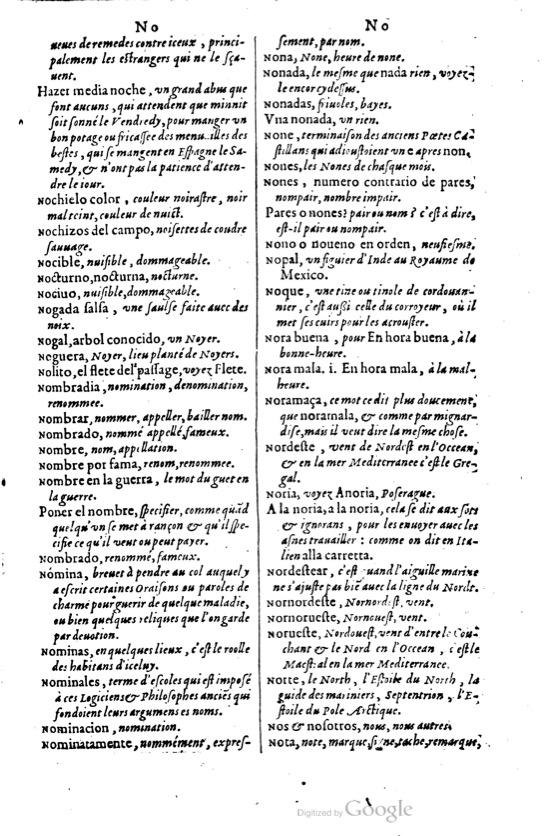 No
ueues de remedes contre iceux, princi-
palement les estrangers qui ne le sça-
uent.
Hazer media noche, vn grand abus que
font aucuns, qui attendent que minuit
soit sonné le Vendredy, pour manger vn
bon potage ou fricassee des menuailles des
bestes, qui se mangent en Espagne le Sa-
medy, & n'ont pas la patience d'atten-
dre le iour.
Nochielo color, couleur noirastre, noir
mal teint, couleur de nuict.
Nochizos del campo, noisettes de coudre
sauuage.
Nocible, nuisible, dommageable.
Nocturno, nocturna, nocturne.
Nociuo, nuisible, dommageable.
Nogada salsa, vne saulse faite auec des
noix.
Nogal, arbol conocido, vn Noyer.
Noguera, Noyer, lieu planté de Noyers.
Nolito, el flete del passage, voyez Flete.
Nombradia, nomination, denomination,
renommee.
Nombrar, nommer, appeller, bailler nom.
Nombrado, nommé appellé, fameux.
Nombre, nom, appellation.
Nombre por fama, renom, renommee.
Nombre en la guerra, le mot du guet en
la guerre.
Poner el nombre, specifier, comme quãd
quelqu'vn se met à rançon & qu'il spe-
cifie ce qu'il veut ou peut payer.
Nombrado, renommé, fameux.
Nómina, breuet à pendre au col auquel y
a escrit certaines Oraisons ou paroles de
charme pour guerir de quelque maladie,
ou bien quelques reliques que l'on garde
par deuotion.
Nominas, en quelques lieux, c'est le roolle
des habitans d'iceluy.
Nominales, terme d'escoles qui est imposé
à ces Logiciens & Philosophes anciẽs qui
fondoient leurs argumens es noms.
Nominacion, nomination.
Nominatamente, nommément, expres-
No
sement, par nom.
Nona, None, heure de none.
Nonada, le mesme que nada rien, voyez
le encor cy dessus.
Nonadas, friuoles, bayes.
Vna nonada, vn rien.
None, terminaison des anciens Poetes Ca-
stillans qui adioustoient vn e apres non.
Nones, les Nones de chasque mois.
Nones, numero contrario de pares,
nompair, nombre impair.
Pares o nones? pair ou nom? c'est à dire,
est-il pair ou nompair.
Nono o noueno en orden, neufiesme.
Nopal, vn figuier d'Inde au Royaume de
Mexico.
Noque, vne tine ou tinole de cordouan-
nier, c'est aussi celle du corroyeur, où il
met ses cuirs pour les acrouster.
Nora buena, pour En hora buena, à la
bonne-heure.
Nora mala. i. En hora mala, à la mal-
heure.
Noramaça, ce mot ce dit plus doucement,
que noramala, & comme par mignar-
dise, mais il veut dire la mesme chose.
Nordeste, vent de Nordest en l'Ocean,
& en la mer Mediterranee c'est le Gre-
gal.
Noria, voyez Anoria, Poserague.
A la noria, a la noria, cela se dit aux sots
& ignorans, pour les enuoyer auec les
asnes trauailler: comme on dit en Ita-
lien alla carretta.
Nordestear, c'est quand l'aiguille marine
ne s'ajuste pas biẽ auec la ligne du Nordt.
Nornordeste, Nornordest, vent.
Nornorueste, Nornouest, vent.
Norueste, Nordouest, vent d'entre le Cou-
chant & le Nord en l'Ocean, c'est le
Maestral en la mer Mediterrance.
Norte, le North, l'Estoile du North, la
guide des mariniers, Septentrion, l'E-
stoile du Pole Arctique.
Nos & nosotros, nous, nous autres.
Nota, note, marque, signe, tache, remarque,
Digitized by Google